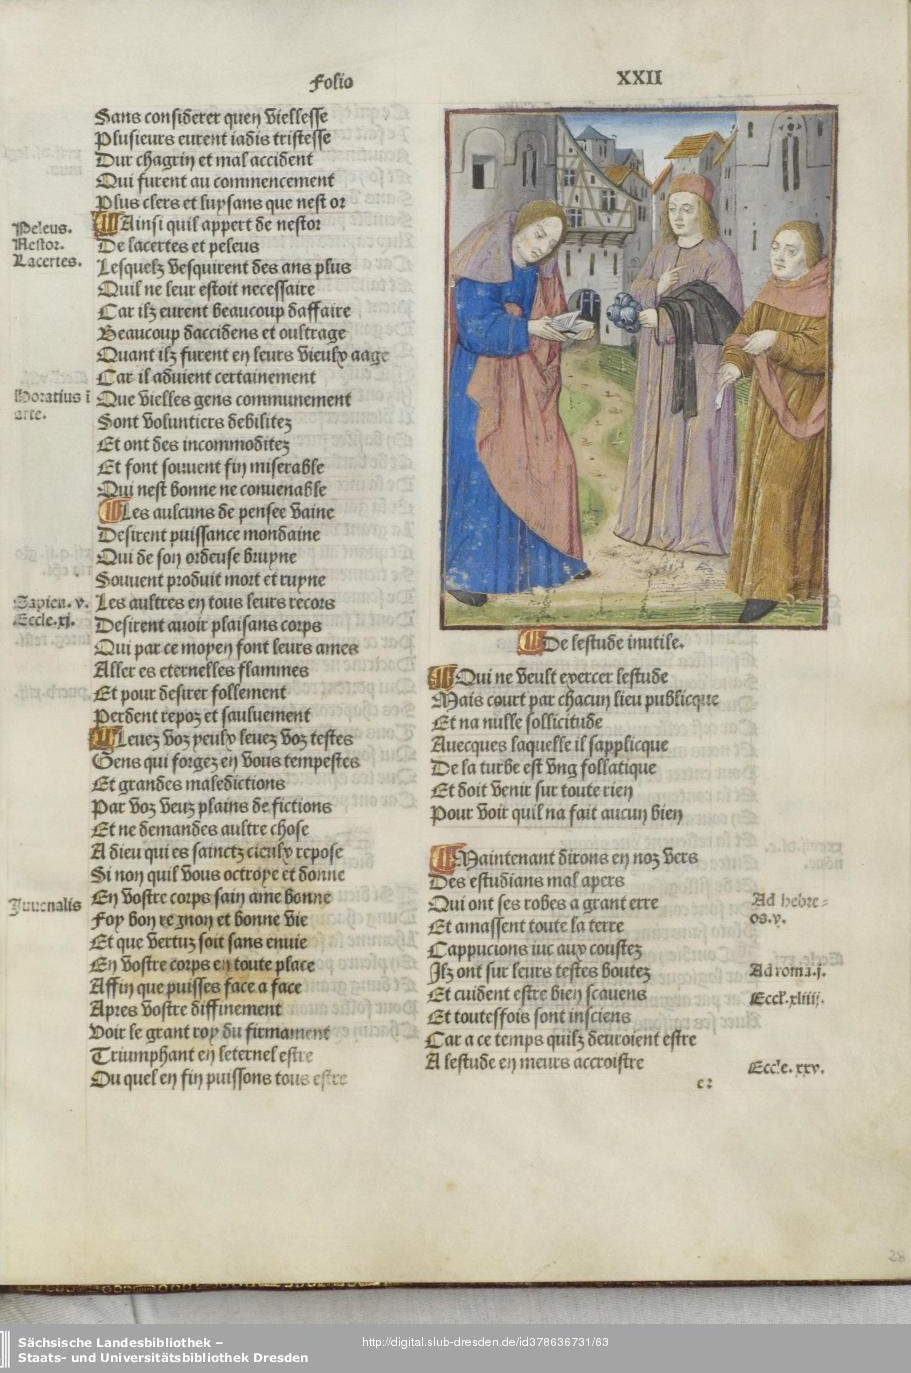 Folio
XXII
Sans considerer quen viellesse
Plusieurs eurent iadis tristesse
Dur chagrin et mal accident
Qui furent au commencement
Plus clers et luysans que nest or
Ainsi quil appert de nestor
De lacertes et peleus
Lesquelz vesquirent des ans plus
Quil ne leur estoit necessaire
Car ilz eurent beaucoup daffaire
Beaucoup daccidens et oultrage
Quant ilz furent en leurs vieulx aage
Car il aduient certainement
Que vielles gens communement
Sont voluntiers debilitez
Et ont des incommoditez
Et font souuent fin miserable
Qui nest bonne ne conuenable
Les aulcuns de pensee vaine
Desirent puissance mondaine
Qui de son ordeuse bruyne
Souuent produit mort et ruyne
Les aultres en tous leurs recors
Desirent auoir plaisans corps
Qui par ce moyen font leurs ames
Aller es eternelles flammes
Et pour desirer follement
Perdent repoz et sauluement
Leuez voz yeulx leuez voz testes
Gens qui forgez en vous tempestes
Et grandes maledictions
Par voz veuz plains de fictions
Et ne demandes aultre chose
A dieu qui es sainctz cieulx repose
Si non quil vous octroye et donne
En vostre corps sain ame bonne
Foy bon regnon et bonne vie
Et que vertuz soit sans enuie
En vostre corps en toute place
Affin que puisses face a face
Apres vostre diffinement
Voir le grant roy du firmament
Triumphant en leternel estre
Ou quel en fin puissons tous estre
Peleus.
Nestor.
Lacertes.
Horatius i
arte.
Sapien. v.
Eccle.xj.
Juuenalis
De lestude inutile.
Qui ne veult exercer lestude
Mais court par chacun lieu publicque
Et na nulle sollicitude
Auecques laquelle il sapplicque
De la turbe est vng follatique
Et doit venir sur toute rien
Pour voir quil na fait aucun bien
Maintenant dirons en noz vers
Des estudians mal apers
Qui ont ses robes a grant erre
Et amassent toute la terre
Cappucions iuc aux coustez
Ilz ont sur leurs testes boutez
Et cuident estre bien scauens
Et toutesfois sont insciens
Car a ce temps quilz deuroient estre
A lestude en meurs accroistre
Ad hebre=
os.v.
Ad roma.j.
Eccl'.xliiij.
Eccle.xxv.
e:
28
Sächsische Landesbibliothek –
Staats- und Universitätsbibliothek Dresden
http://digital.slub-dresden.de/id378636731/63